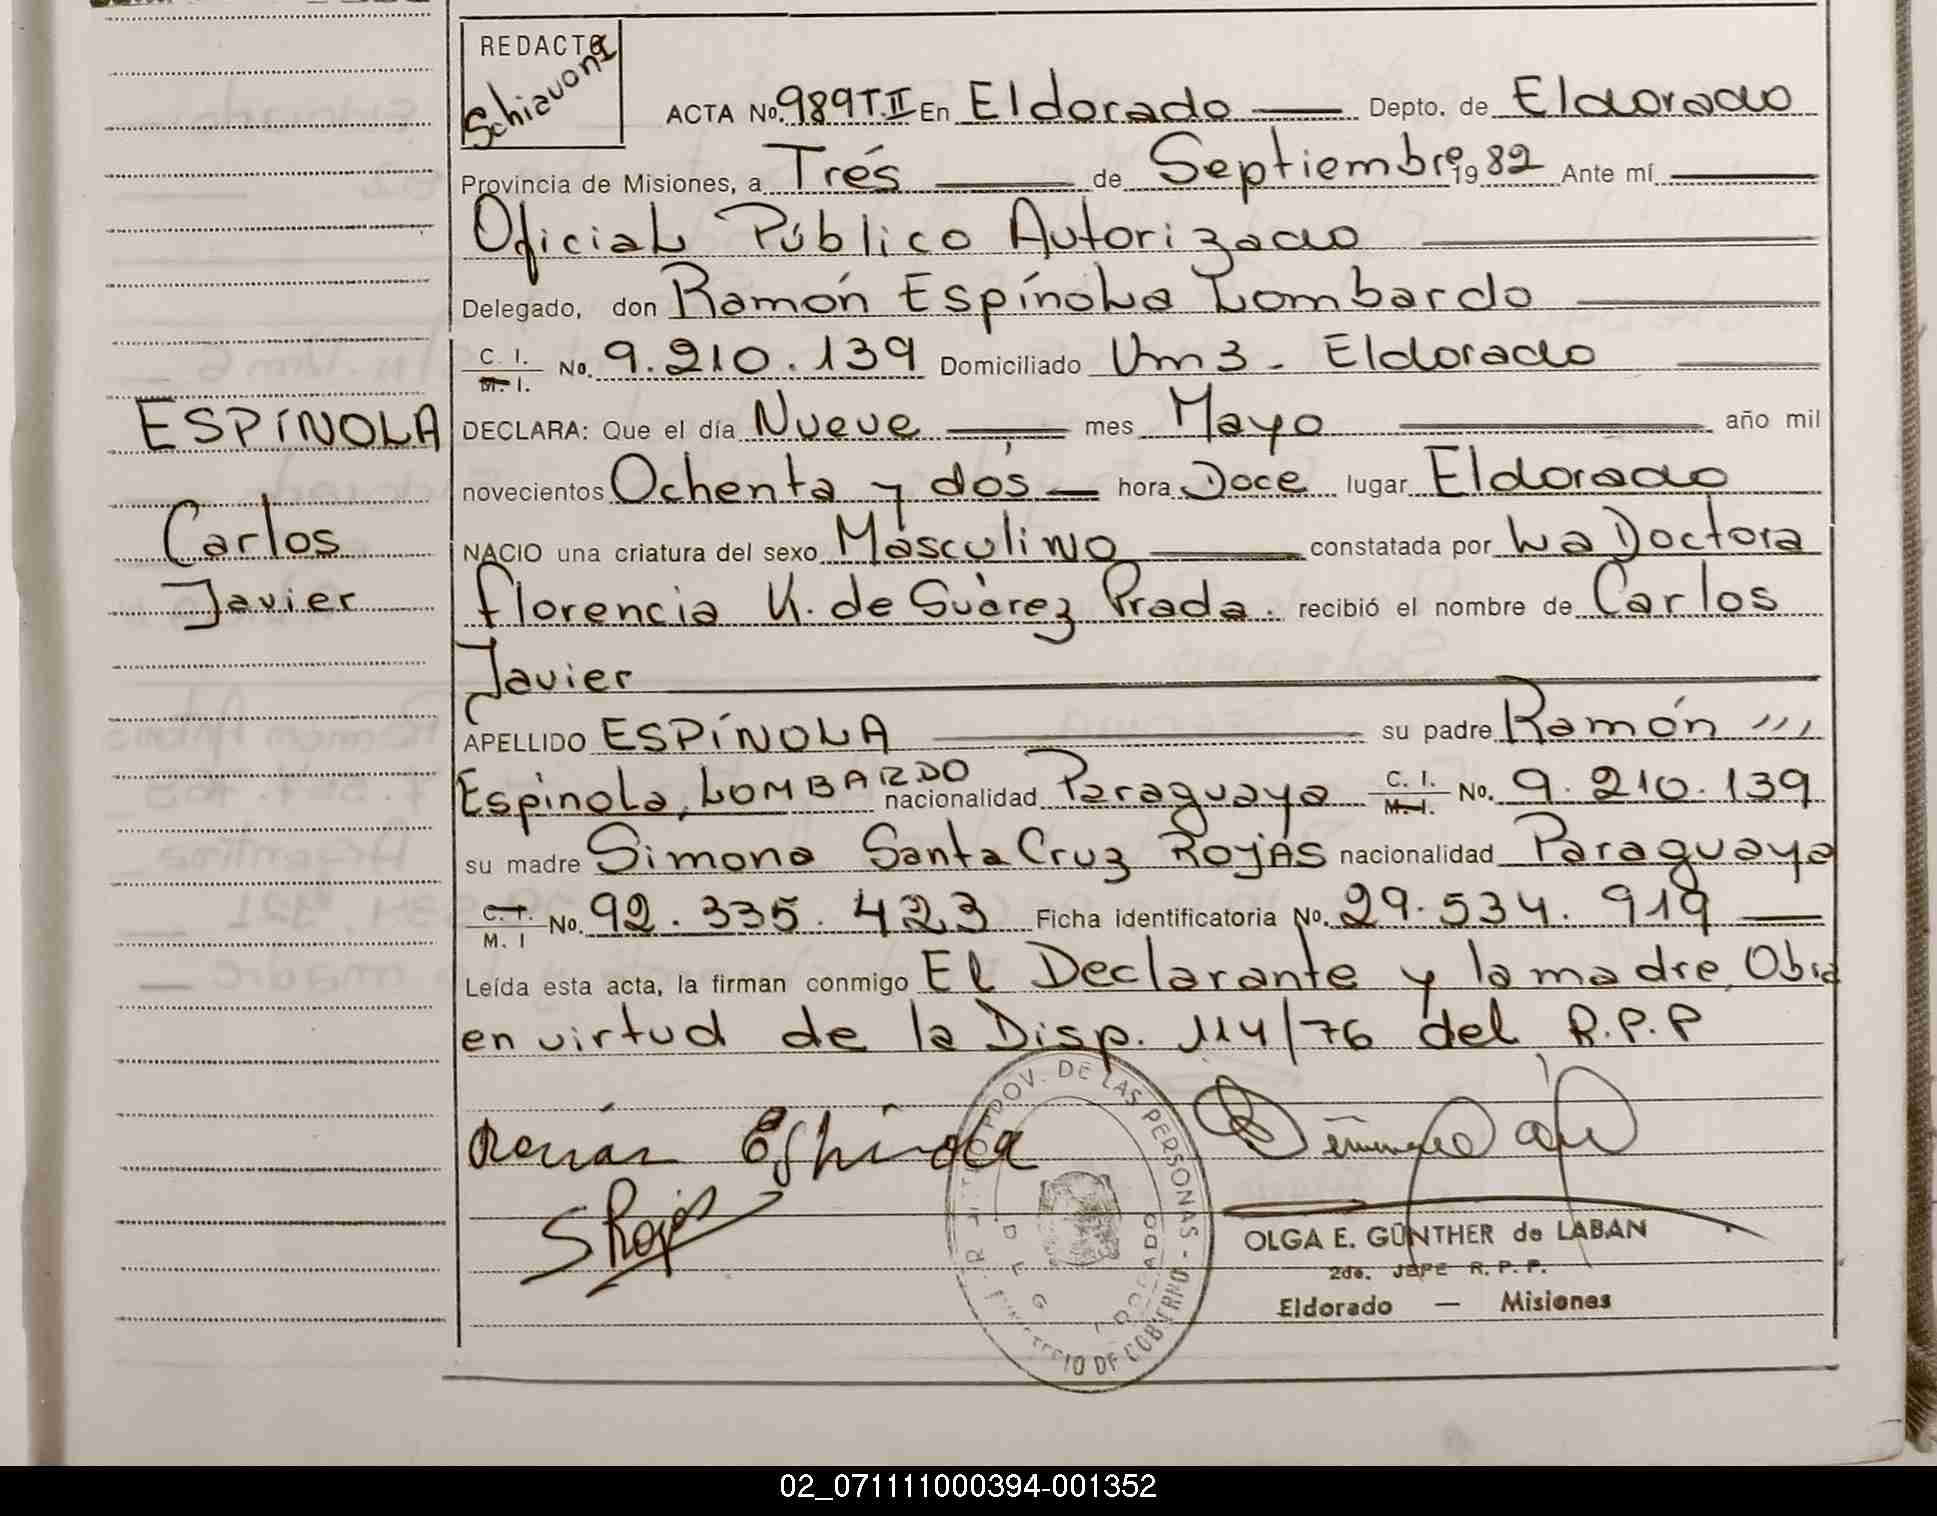 REDACTO
Schiavoni
ACTA No. 989 T.II En Eldorado Depto. de Eldorado
Provincia de Misiones, a Trés de Septiembre 1982 Ante mí
Oficial Público Autorizado
Delegado, don Ramón Espínola Lombardo
C. I. M. I. No. 9.210.139 Domiciliado Km 3 - Eldorado
ESPÍNOLA
DECLARA: Que el día Nueve mes Mayo año mil
novecientos Ochenta y dós hora Doce lugar Eldorado
Carlos
NACIO una criatura del sexo Másculino constatada por La Doctora
Javier
Florencia K. de Suárez Prada. recibió el nombre de Carlos
Javier
APELLIDO ESPÍNOLA su padre Ramón
Espinola, LOMBARDO nacionalidad Paraguaya C. I. M. I. No. 9.210.139
su madre Simona Santa Cruz ROJAS nacionalidad Paraguaya
C. I. M. I No. 92.335.423 Ficha identificatoria No. 29.534.919
Leída esta acta, la firman conmigo El Declarante y la madre, Obra
en virtud de la Disp. 114/76 del R.P.P
Ramón Espínola
S Rojas
PROV. DE LAS PERSONAS -
DE GOBIERNO
OLGA E. GÜNTHER de LABAN
2da. JEFE R. P. P.
Eldorado — Misiones
02_071111000394-001352